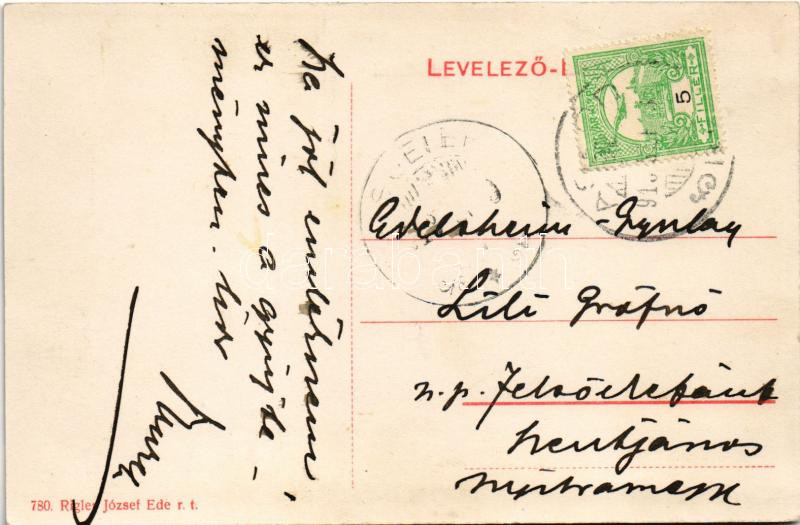 LEVELEZŐ-L
5
FILLÉR
Ha jól emlékszem
ez nincs a gyűjte-
ményben. Üdv
Edelsheim-Gyulay
Lili Grófnő
u.p. Felsőelefánt
Szentjános
Nyitramegye
darabanth
780. Rigler József Ede r. t.